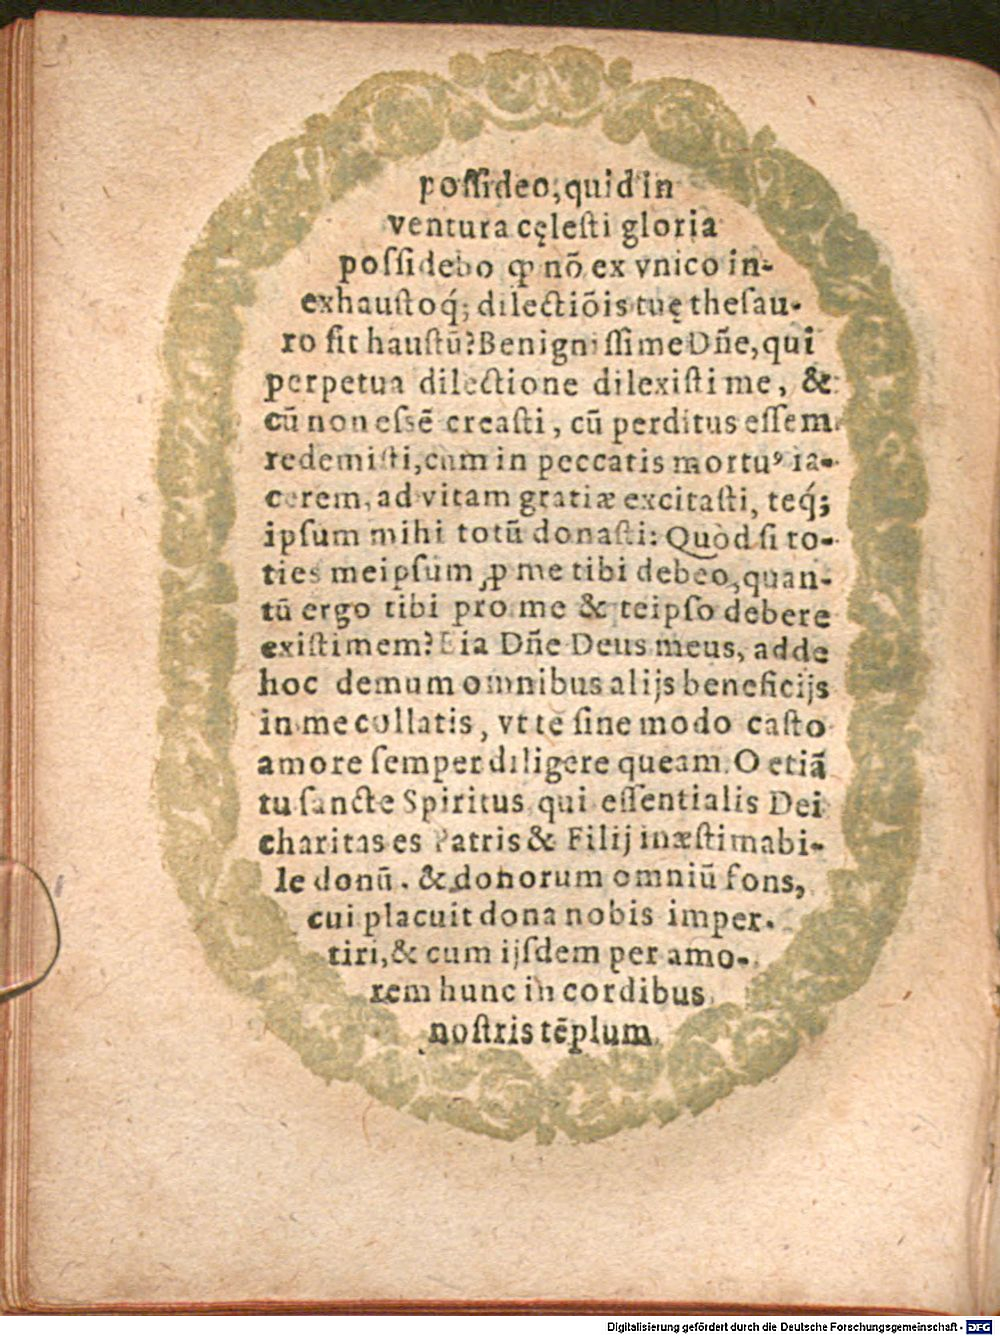 poſſideo, quid in
ventura cęleſti gloria
poſſidebo ꝙ nõ ex vnico in-
exhauſtoq́; dilectiõis tuę theſau-
ro ſit hauſtũ? Benigniſſime Dñe, qui
perpetua dilectione dilexiſti me, &
cũ non eſsẽ creaſti, cũ perditus eſſem
redemiſti, cum in peccatis mortuꝰ ia-
cerem, ad vitam gratiæ excitaſti, teq́;
ipſum mihi totũ donaſti: Quòd ſi to-
ties meipſum ꝓ me tibi debeo, quan-
tũ ergo tibi pro me & teipſo debere
exiſtimem? Eia Dñe Deus meus, adde
hoc demum omnibus alijs beneficijs
in me collatis, vt te ſine modo caſto
amore ſemper diligere queam. O etiã
tu ſancte Spiritus qui eſſentialis Dei
charitas es Patris & Filij inæſtimabi-
le donũ. & donorum omniũ fons,
cui placuit dona nobis imper-
tiri, & cum ijſdem per amo-
rem hunc in cordibus
noſtris tẽplum
Digitalisierung gefördert durch die Deutsche Forschungsgemeinschaft - DFG